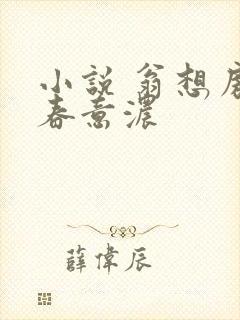 小説 翁想
春意濃
薛偉辰